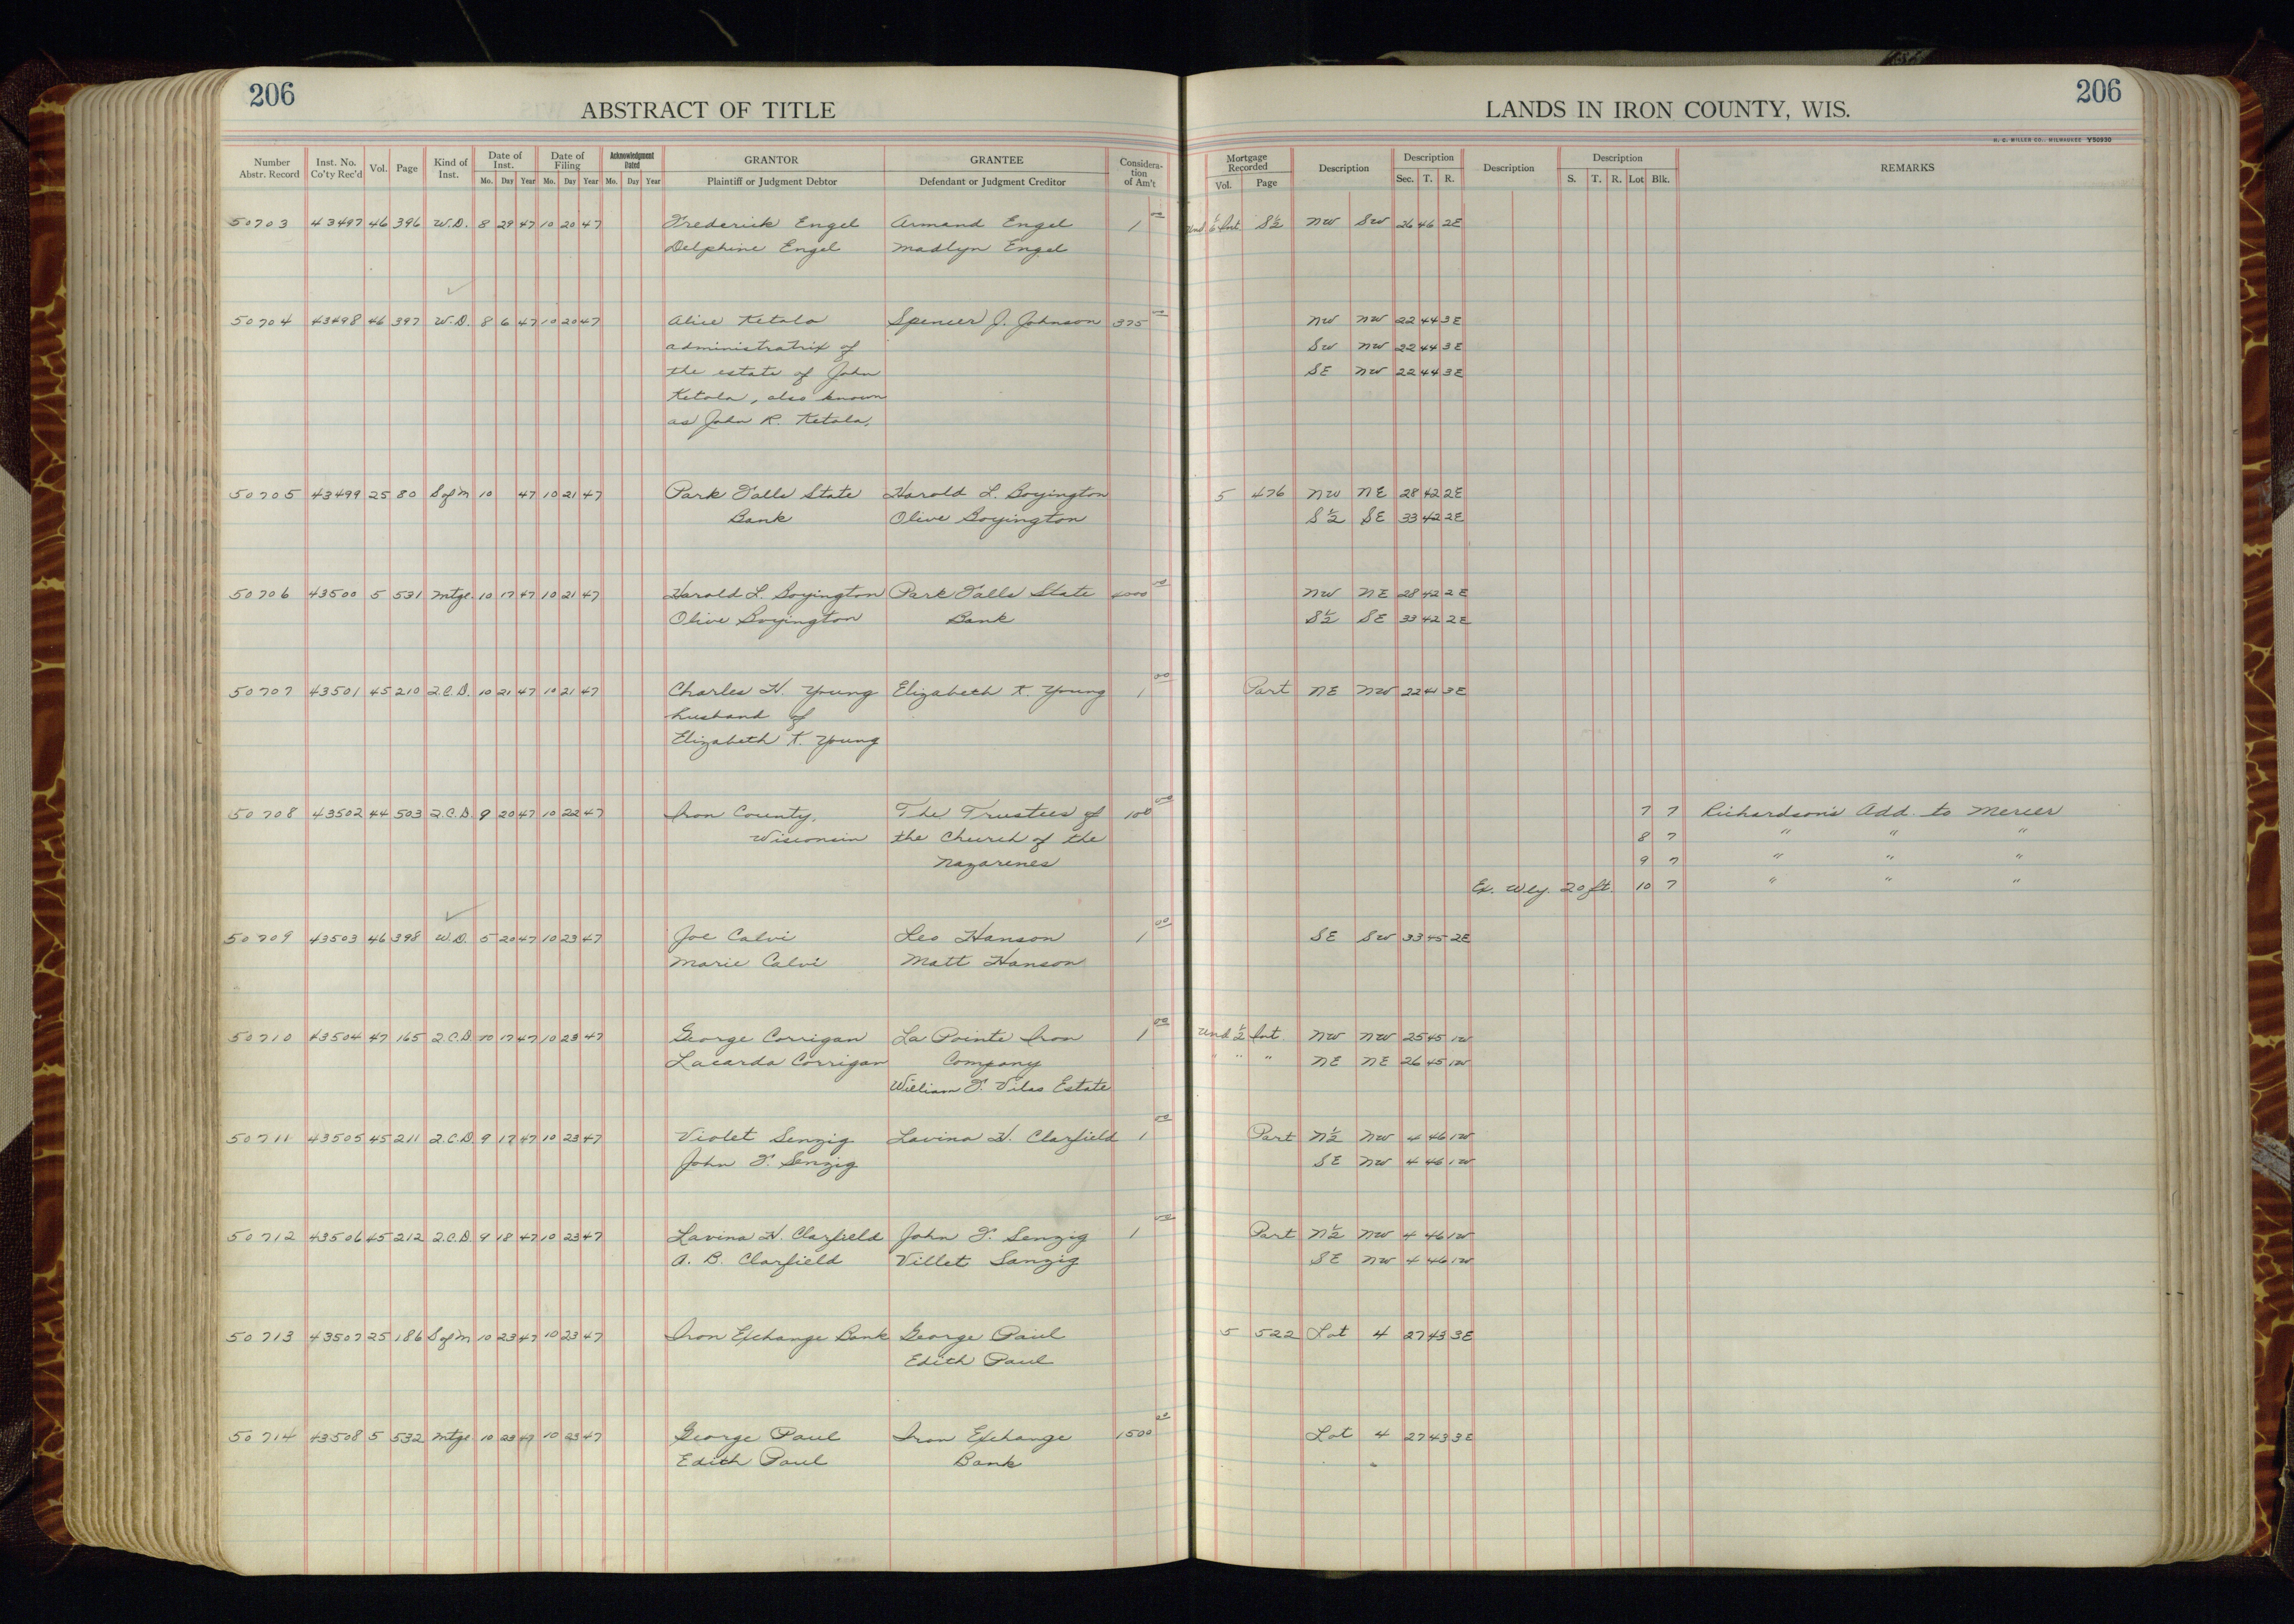 206 206
ABSTRACT OF TITLE LANDS IN IRON COUNTY, WIS.
H. C. MILLER CO., MILWAUKEE Y50930
Number Abstr. Record Inst. No. Co'ty Rec'd Vol. Page Kind of Inst. Date of Inst. Mo. Day Year Date of Filing Mo. Day Year Acknowledgment Dated Mo. Day Year GRANTOR Plaintiff or Judgment Debtor GRANTEE Defendant or Judgment Creditor Considera-tion of Am't Mortgage Recorded Vol. Page Description Description Sec. T. R. Description Description S. T. R. Lot Blk. REMARKS
50703 43497 46 396 W.D. 8 29 47 10 20 47 Frederick Engel Armand Engel 1 00 Und 1/6 Int. S½ NW SW 26 46 2E
Delphine Engel Madlyn Engel
50704 43498 46 397 W.D. 8 6 47 10 20 47 Alice Ketola Spencer J. Johnson 375 00 NW NW 22 44 3E
administratrix of SW NW 22 44 3E
the estate of John SE NW 22 44 3E
Ketola, also known
as John R. Ketola,
50705 43499 25 80 S of M 10 47 10 21 47 Park Falls State Harold L. Boyington 5 476 NW NE 28 42 2E
Bank Olive Boyington S½ SE 33 42 2E
50706 43500 5 531 Mtge. 10 17 47 10 21 47 Harold L. Boyington Park Falls State 00 NW NE 28 42 2E
Olive Boyington Bank S½ SE 33 42 2E
50707 43501 45 210 Q.C.D. 10 21 47 10 21 47 Charles H. Young Elizabeth K. Young 1 00 Part NE NW 22 41 3E
husband of
Elizabeth K. Young
50708 43502 44 503 Q.C.D. 9 20 47 10 22 47 Iron County, The Trustees of 100 00 7 7 Richardson's Add. to Mercer
Wisconsin the Church of the 8 7 " " "
Nazarenes 9 7 " " "
Ex. Wly. 20 ft. 10 7 " " "
50709 43503 46 398 W.D. 5 20 47 10 23 47 Joe Calvi Leo Hanson 1 00 SE SW 33 45 2E
Marie Calvi Matt Hanson
50710 43504 47 165 Q.C.D. 10 17 47 10 23 47 George Corrigan La Pointe Iron 1 00 Und ½ Int. NW NW 25 45 1W
Lacarda Corrigan Company " " " NE NE 26 45 1W
William F. Vilas Estate
50711 43505 45 211 Q.C.D. 9 17 47 10 23 47 Violet Senzig Lavina H. Clarfield 1 00 Part N½ NW 4 46 1W
John F. Senzig SE NW 4 46 1W
50712 43506 45 212 Q.C.D. 9 18 47 10 23 47 Lavina H. Clarfield John F. Senzig 1 00 Part N½ NW 4 46 1W
A. B. Clarfield Villet Sanzig SE NW 4 46 1W
50713 43507 25 186 S of M 10 23 47 10 23 47 Iron Exchange Bank George Paul 5 522 Lot 4 27 43 3E
Edith Paul
50714 43508 5 532 Mtge 10 23 47 10 23 47 George Paul Iron Exchange 1500 00 Lot 4 27 43 3E
Edith Paul Bank